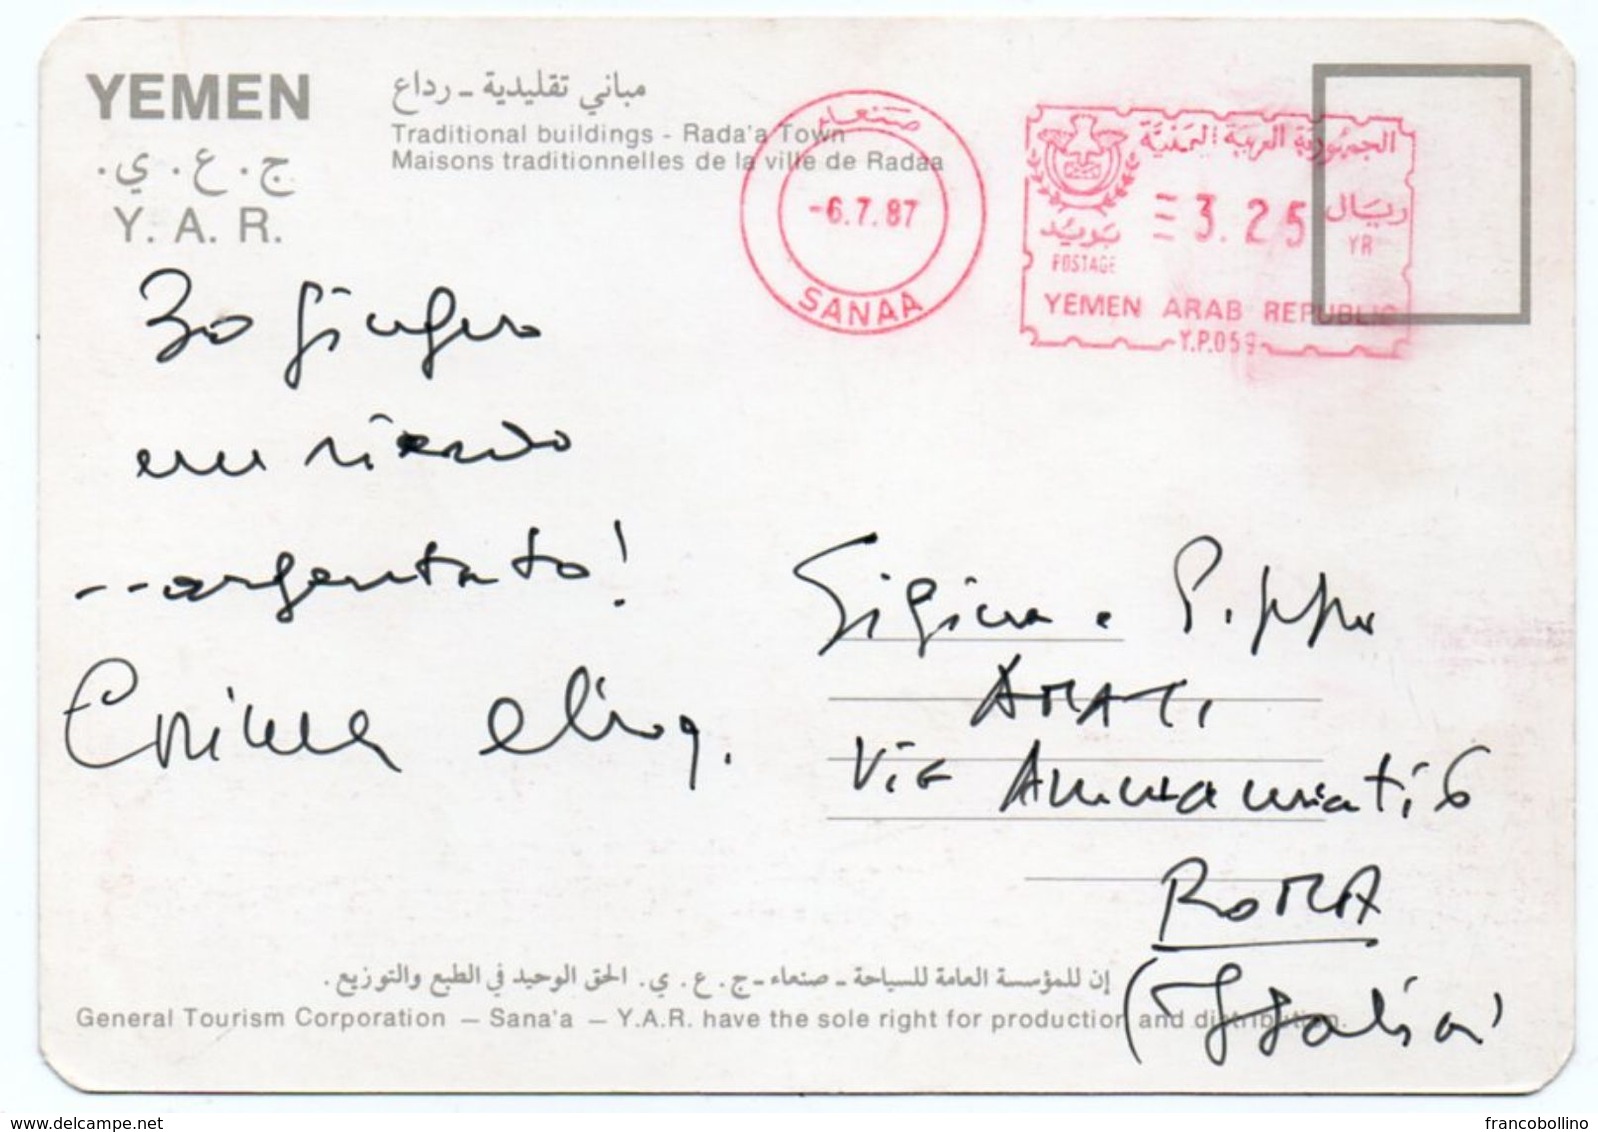 YEMEN
ج . ع . ي .
Y. A. R.
مباني تقليدية - رداع
Traditional buildings - Rada'a Town
Maisons traditionnelles de la ville de Radaa
صنعاء
-6.7.87
SANAA
الجمهورية العربية اليمنية
بريد
POSTAGE
3.25
ريال
YR
YEMEN ARAB REPUBLIC
Y.P.059
30 Giugno
un ricordo
--argentato!
Gigina e Pippo
AMATI
Via Ammannati 6
ROMA
(Italia)
إن للمؤسسة العامة للسياحة - صنعاء - ج . ع . ي . الحق الوحيد في الطبع والتوزيع .
General Tourism Corporation — Sana'a — Y.A.R. have the sole right for production and distribution.
delcampe.net
francobollino